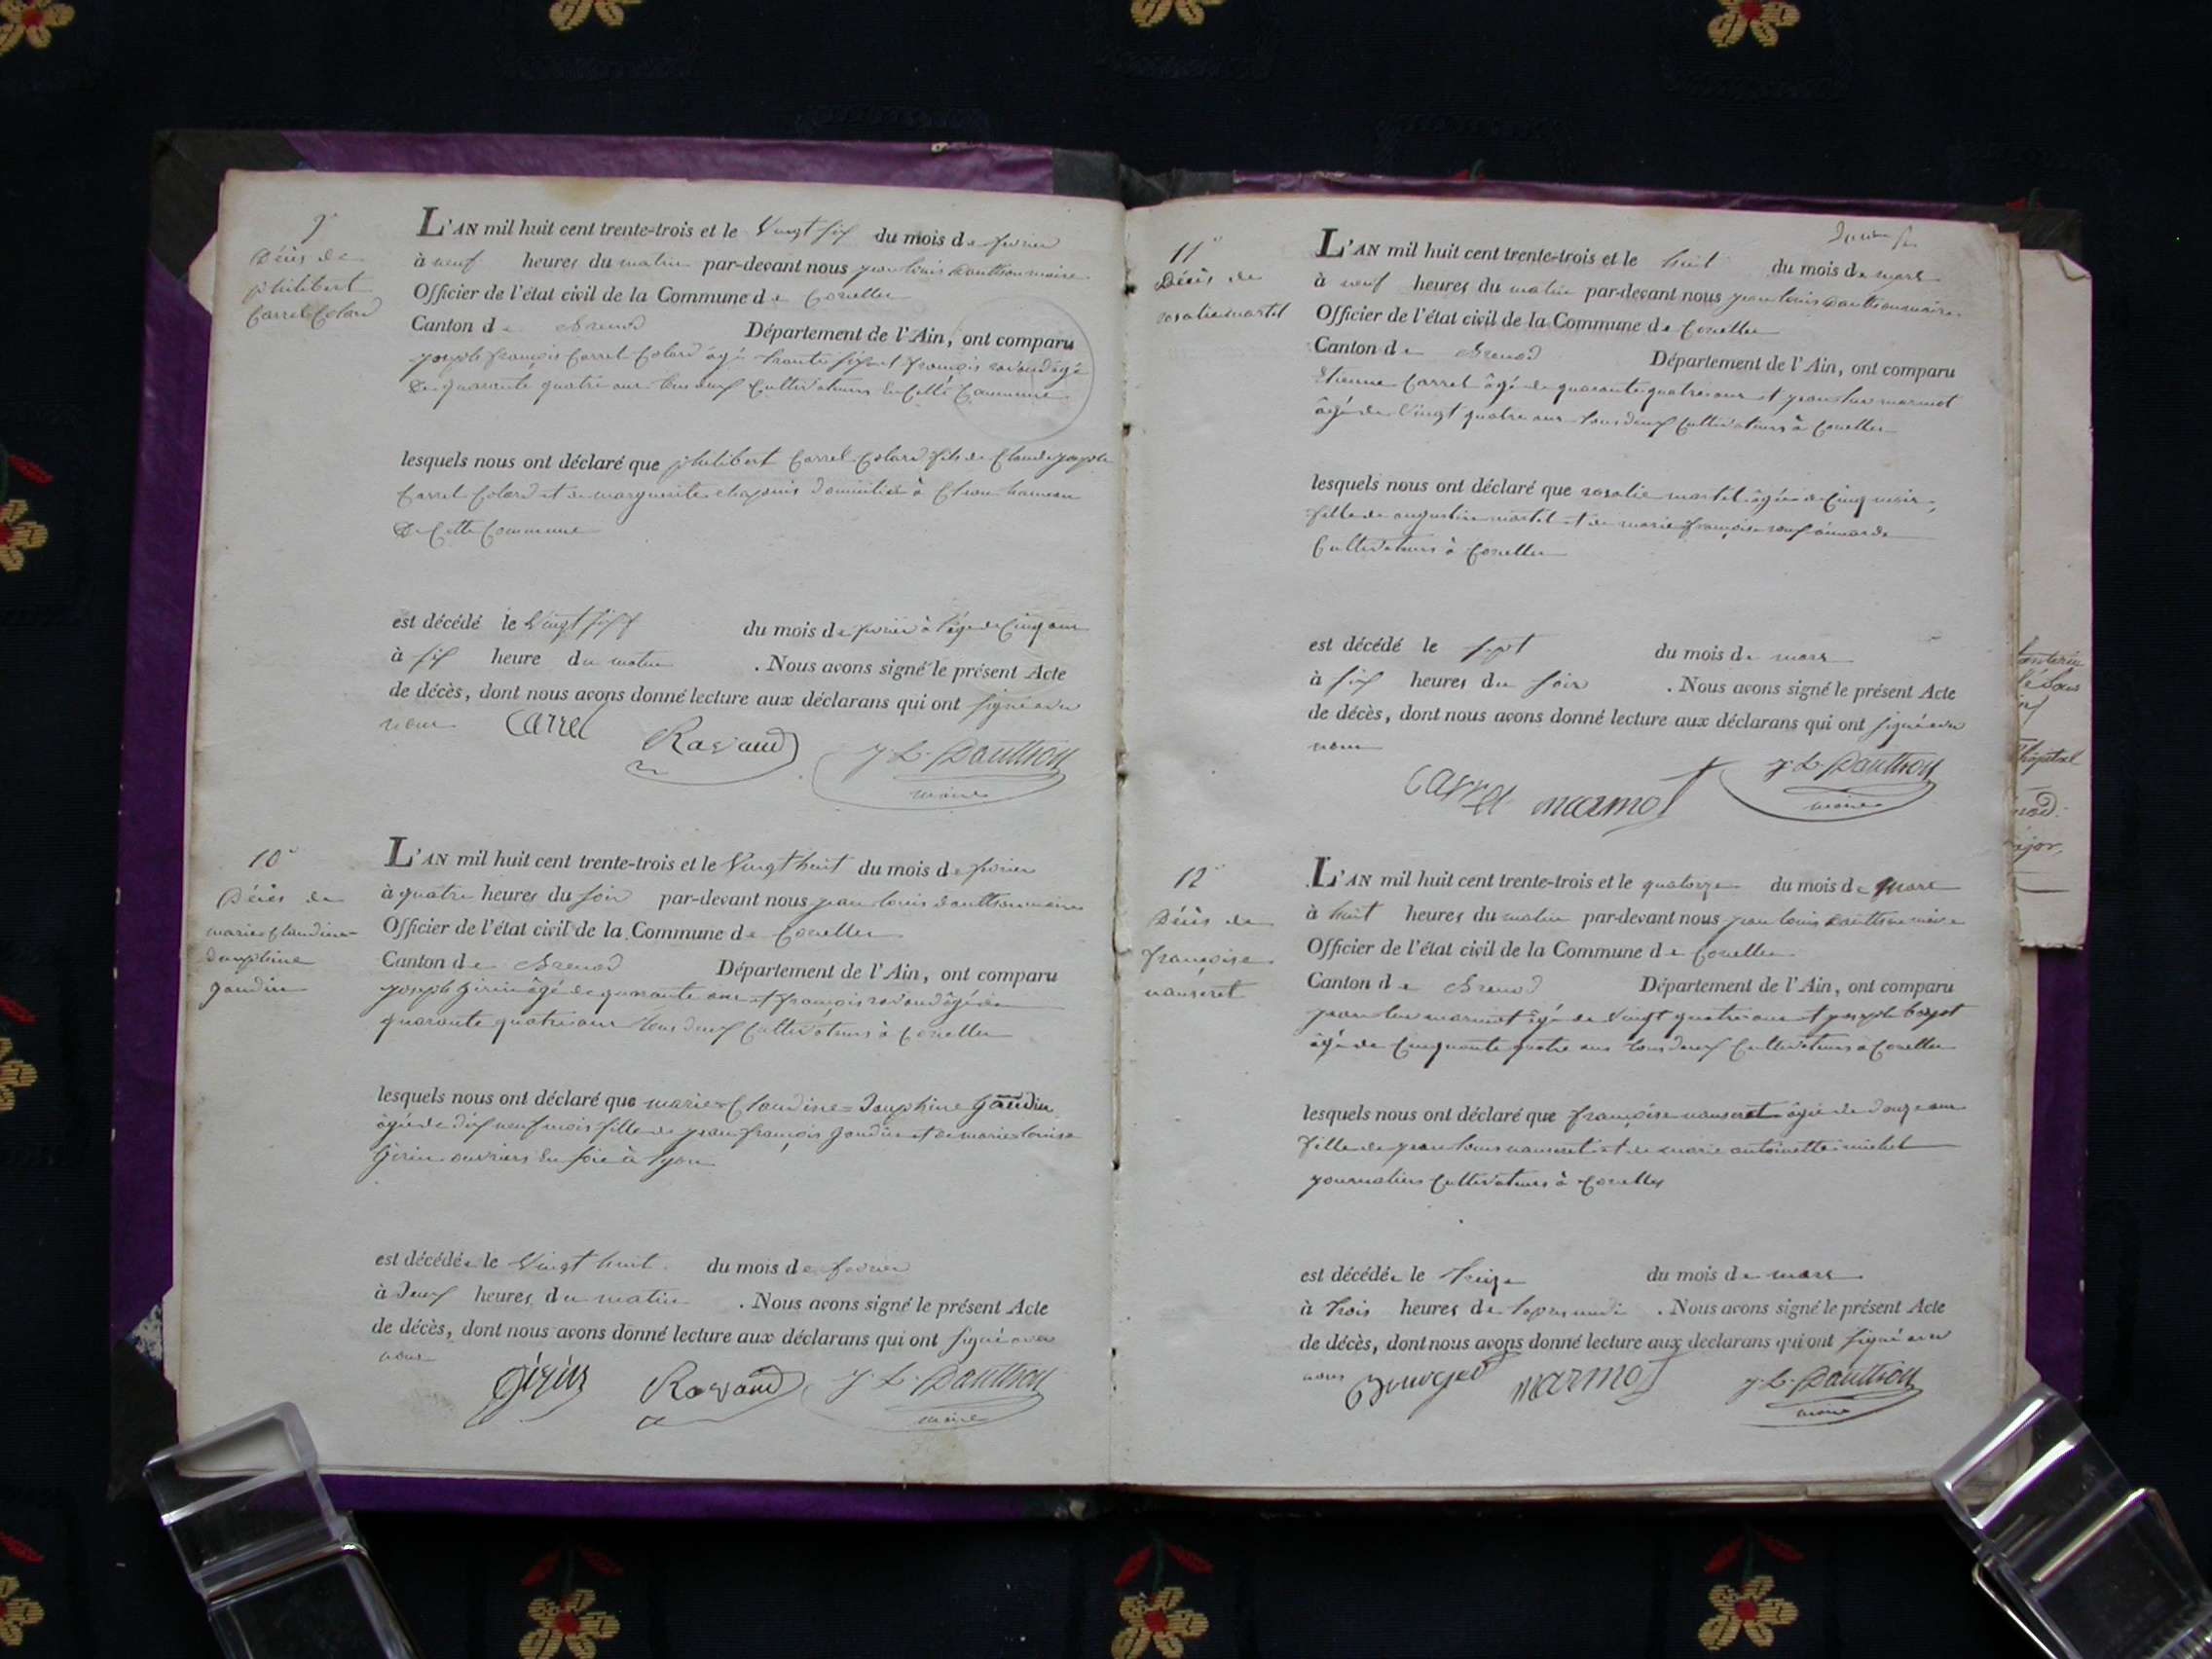 9°
Décès de
philibert
Carrel Colard
L'AN mil huit cent trente-trois et le vingt six du mois de fevrier
à neuf heures du matin par-devant nous jean louis maire
Officier de l'état civil de la Commune de Corcelles
Canton de Brenod Département de l'Ain, ont comparu
joseph françois Carrel Colard âgé trente six et françois ravaud âgé
de quarante quatre ans tous deux Cultivateurs en Cette Commune
lesquels nous ont déclaré que philibert Carrel Colard fils de Claude joseph
Carrel Colard et de marguerite chapuis domicilié à hameau
de Cette Commune
est décédé le vingt six du mois de fevrier à l'âge de Cinq ans
à six heure du matin . Nous avons signé le présent Acte
de décès, dont nous avons donné lecture aux déclarans qui ont signé avec
nous Carrel
Ravaud J. L.
maire
10°
Décès de
marie Claudine
Josephine
gaudin
L'AN mil huit cent trente-trois et le vingt huit du mois de fevrier
à quatre heures du soir par-devant nous jean louis maire
Officier de l'état civil de la Commune de Corcelles
Canton de Brenod Département de l'Ain, ont comparu
joseph girin âgé de quarante ans et françois ravaud âgé de
quarante quatre ans tous deux Cultivateurs à Corcelles
lesquels nous ont déclaré que marie Claudine Josephine gaudin
âgée de dix neuf mois fille de jean françois gaudin et de marie louise
girin ouvriers en soie à lyon
est décédée le vingt huit du mois de fevrier
à deux heures du matin . Nous avons signé le présent Acte
de décès, dont nous avons donné lecture aux déclarans qui ont signé avec
nous
Girin Ravaud J. L.
maire
11°
Décès de
rosalie martel
L'AN mil huit cent trente-trois et le huit du mois de mars
à neuf heures du matin par-devant nous jean louis maire
Officier de l'état civil de la Commune de Corcelles
Canton de Brenod Département de l'Ain, ont comparu
Etienne Carrel âgé de quarante quatre ans et jean marmot
âgé de vingt quatre ans tous deux Cultivateurs à Corcelles
lesquels nous ont déclaré que rosalie martel âgée de Cinq mois,
fille de augustin martel et de marie françoise
Cultivateurs à Corcelles
est décédé le sept du mois de mars
à six heures du soir . Nous avons signé le présent Acte
de décès, dont nous avons donné lecture aux déclarans qui ont signé avec
nous
Carrel marmot J. L.
maire
12°
Décès de
françoise
nanseret
L'AN mil huit cent trente-trois et le quatorze du mois de mars
à huit heures du matin par-devant nous jean louis maire
Officier de l'état civil de la Commune de Corcelles
Canton de Brenod Département de l'Ain, ont comparu
jean marmot âgé de vingt quatre ans et joseph
âgé de Cinquante quatre ans tous deux Cultivateurs à Corcelles
lesquels nous ont déclaré que françoise nanseret âgée de douze ans
fille de jean louis nanseret et de marie antoinette michel
journaliers Cultivateurs à Corcelles
est décédée le treize du mois de mars
à trois heures de l'apres midi . Nous avons signé le présent Acte
de décès, dont nous avons donné lecture aux declarans qui ont signé avec
nous marmot J. L.
maire
l'hôpital